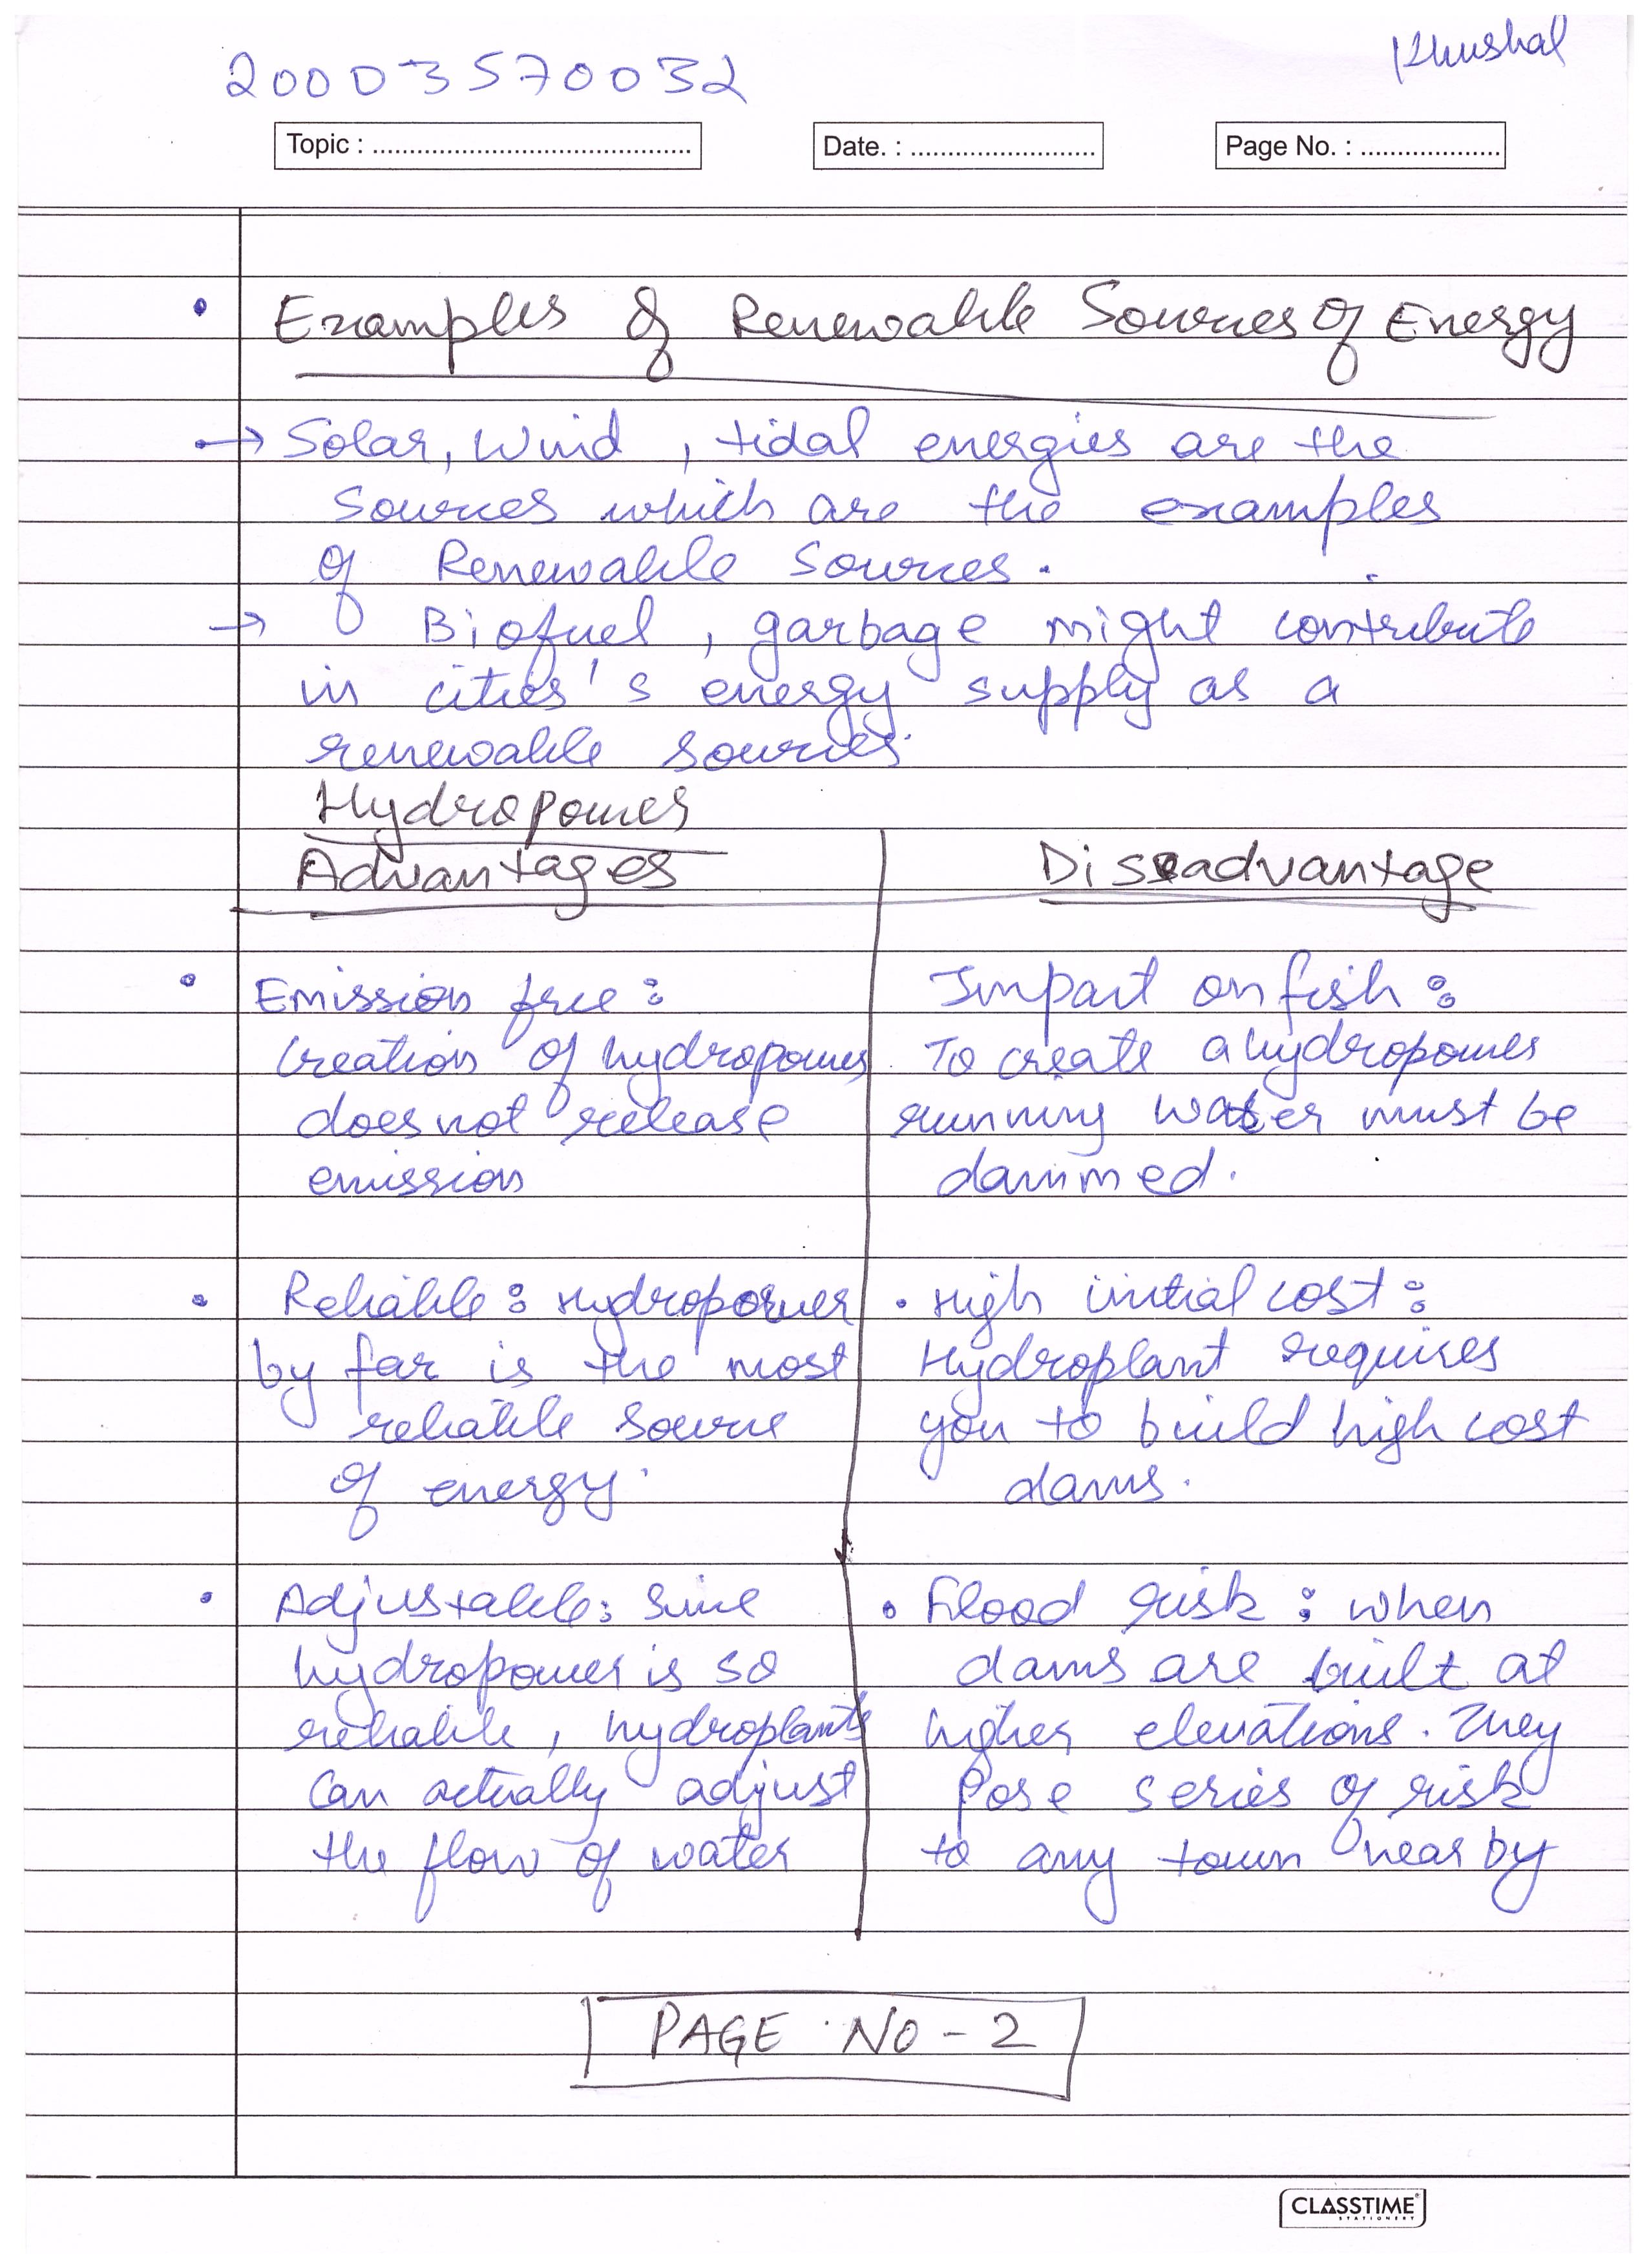 20003570032
Khushal
Topic : ............................................
Date. : .........................
Page No. : ...................
• Examples of Renewable Sources of Energy
→ Solar, Wind , tidal energies are the
sources which are the examples
of Renewable Sources.
→ Biofuel , garbage might contribute
in cities's energy supply as a
renewable sources.
Hydropower
Advantages
Disadvantage
• Emission free :
Creation of hydropower
does not release
emission
Impact on fish :
To create a hydropower
running water must be
dammed.
• Reliable : Hydropower
by far is the most
reliable source
of energy.
• High initial cost :
Hydroplant requires
you to build high cost
dams.
• Adjustable : Since
hydropower is so
reliable, hydroplants
can actually adjust
the flow of water
• Flood risk : when
dams are built at
higher elevations. They
pose series of risk
to any town near by
PAGE NO - 2
CLASSTIME
STATIONERY